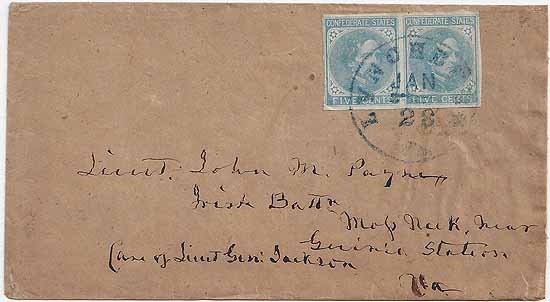 CONFEDERATE STATES CONFEDERATE STATES
LYNCHBURG
JAN
28
FIVE CENTS FIVE CENTS
Lieut. John M. Payne,
Irish Battn
Moss Neck, near
Guinea Station
Care of Lieut Genl Jackson
Va.